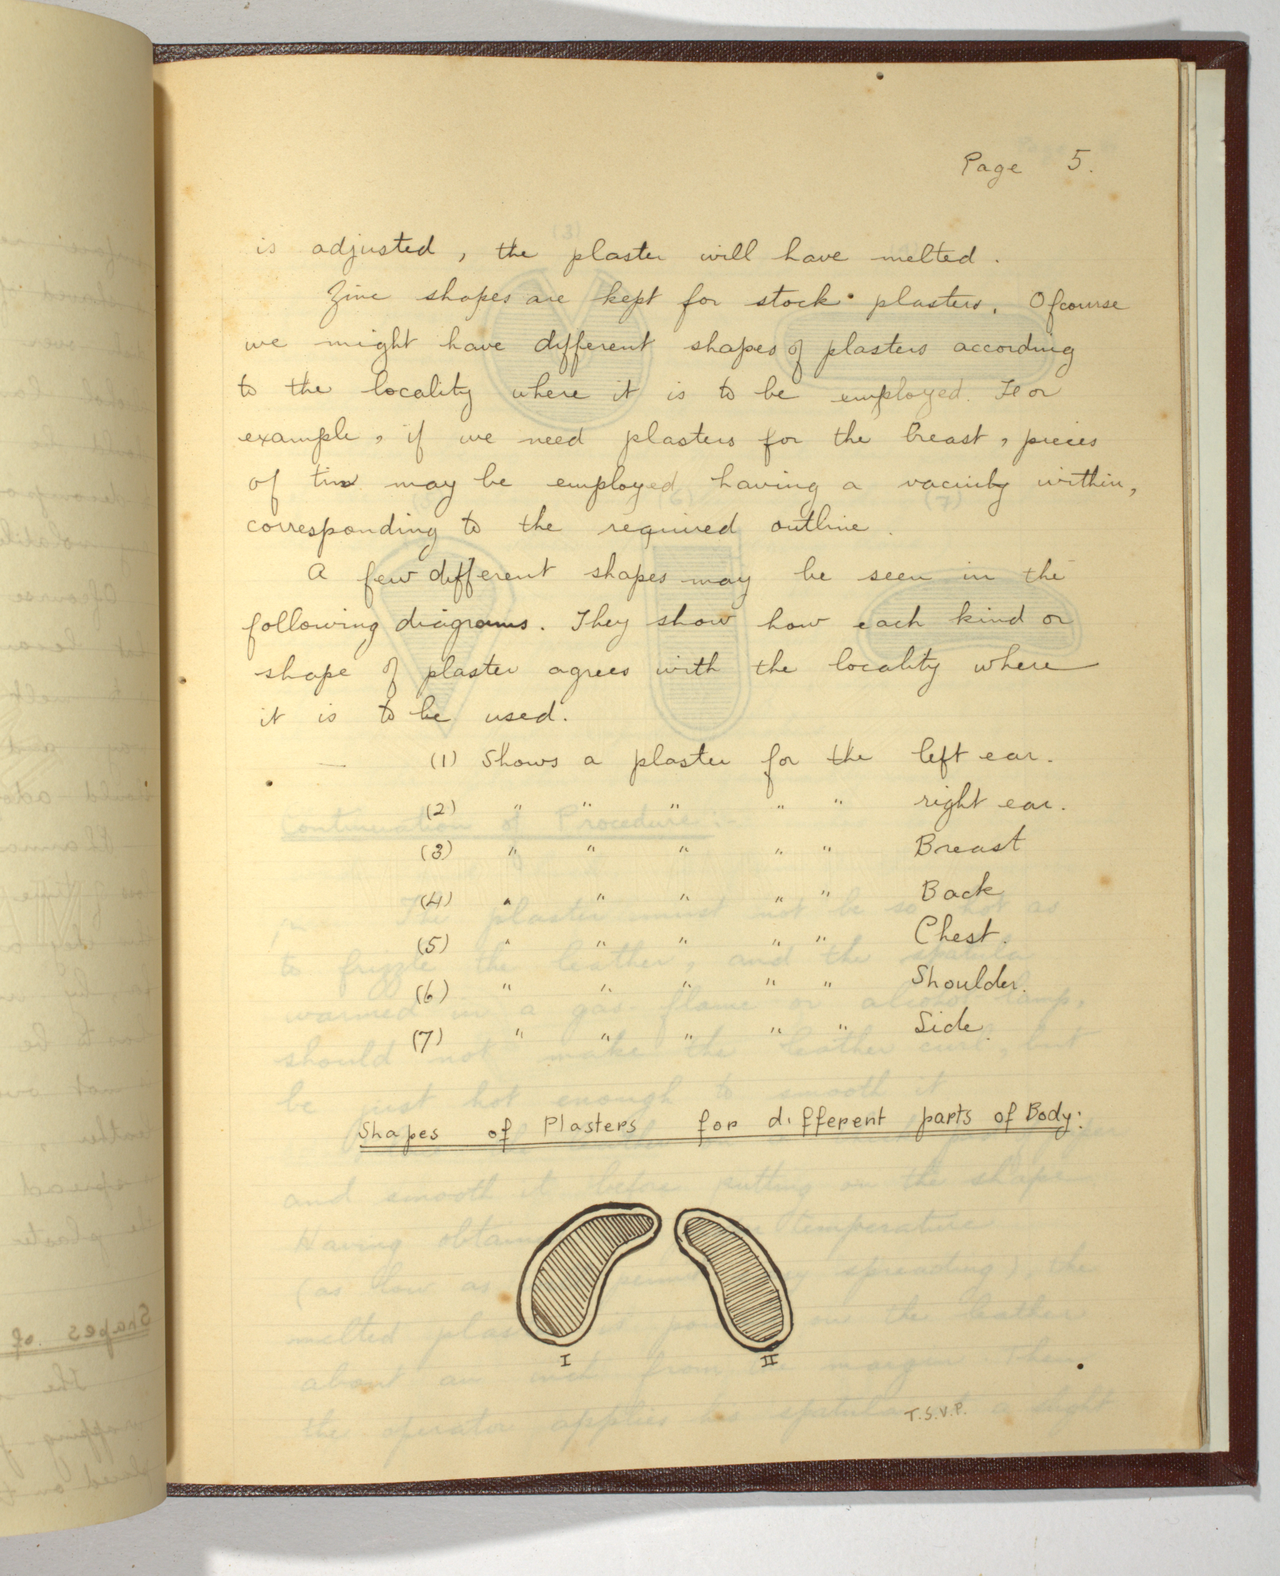 Page 5.
is adjusted, the plaster will have melted.
Zinc shapes are kept for stock plasters. Ofcourse
we might have different shapes of plasters according
to the locality where it is to be employed. For
example, if we need plasters for the breast, pieces
of tin may be employed having a vacuity within,
corresponding to the required outline.
A few different shapes may be seen in the
following diagrams. They show how each kind or
shape of plaster agrees with the locality where
it is to be used.
(1) Shows a plaster for the left ear.
(2) " " " " " right ear.
(3) " " " " " Breast
(4) " " " " " Back
(5) " " " " " Chest.
(6) " " " " " Shoulder.
(7) " " " " " Side.
Shapes of Plasters for different parts of Body:
I II
T.S.V.P.